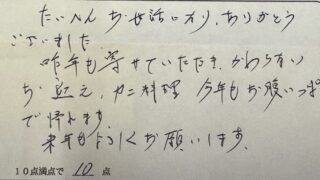 たいへんお世話になり、ありがとう
ございました
昨年も寄せていただき、かわらない
お迎え、カニ料理 今年もお腹いっぱい
で帰ります
来年もよろしくお願いします。
10点満点で 10 点